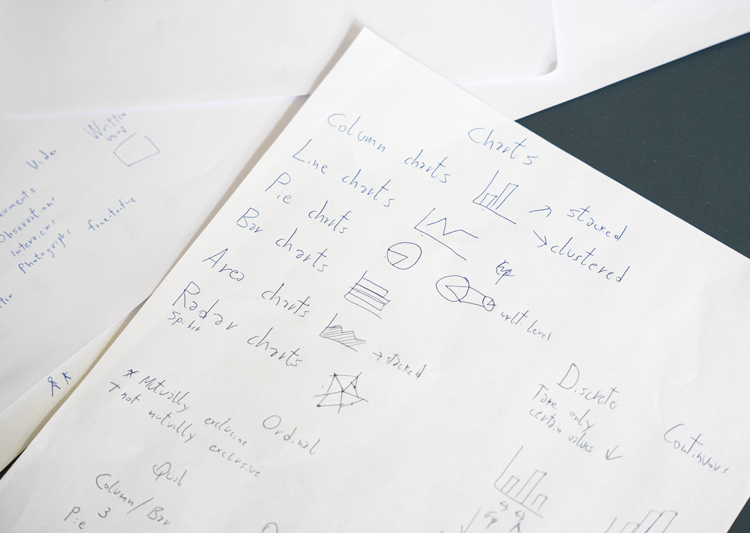 Charts
Column charts
stacked
clustered
Line charts
Pie charts
multi level
Bar charts
Area charts
stacked
Radar charts
Spider
* Mutually exclusive
+ not mutually exclusive
Ordinal
Discrete
Take only
certain values
Continuous
Qual
Column/Bar
Pie 3
Written
Video
Observation
Interviews
Photographs